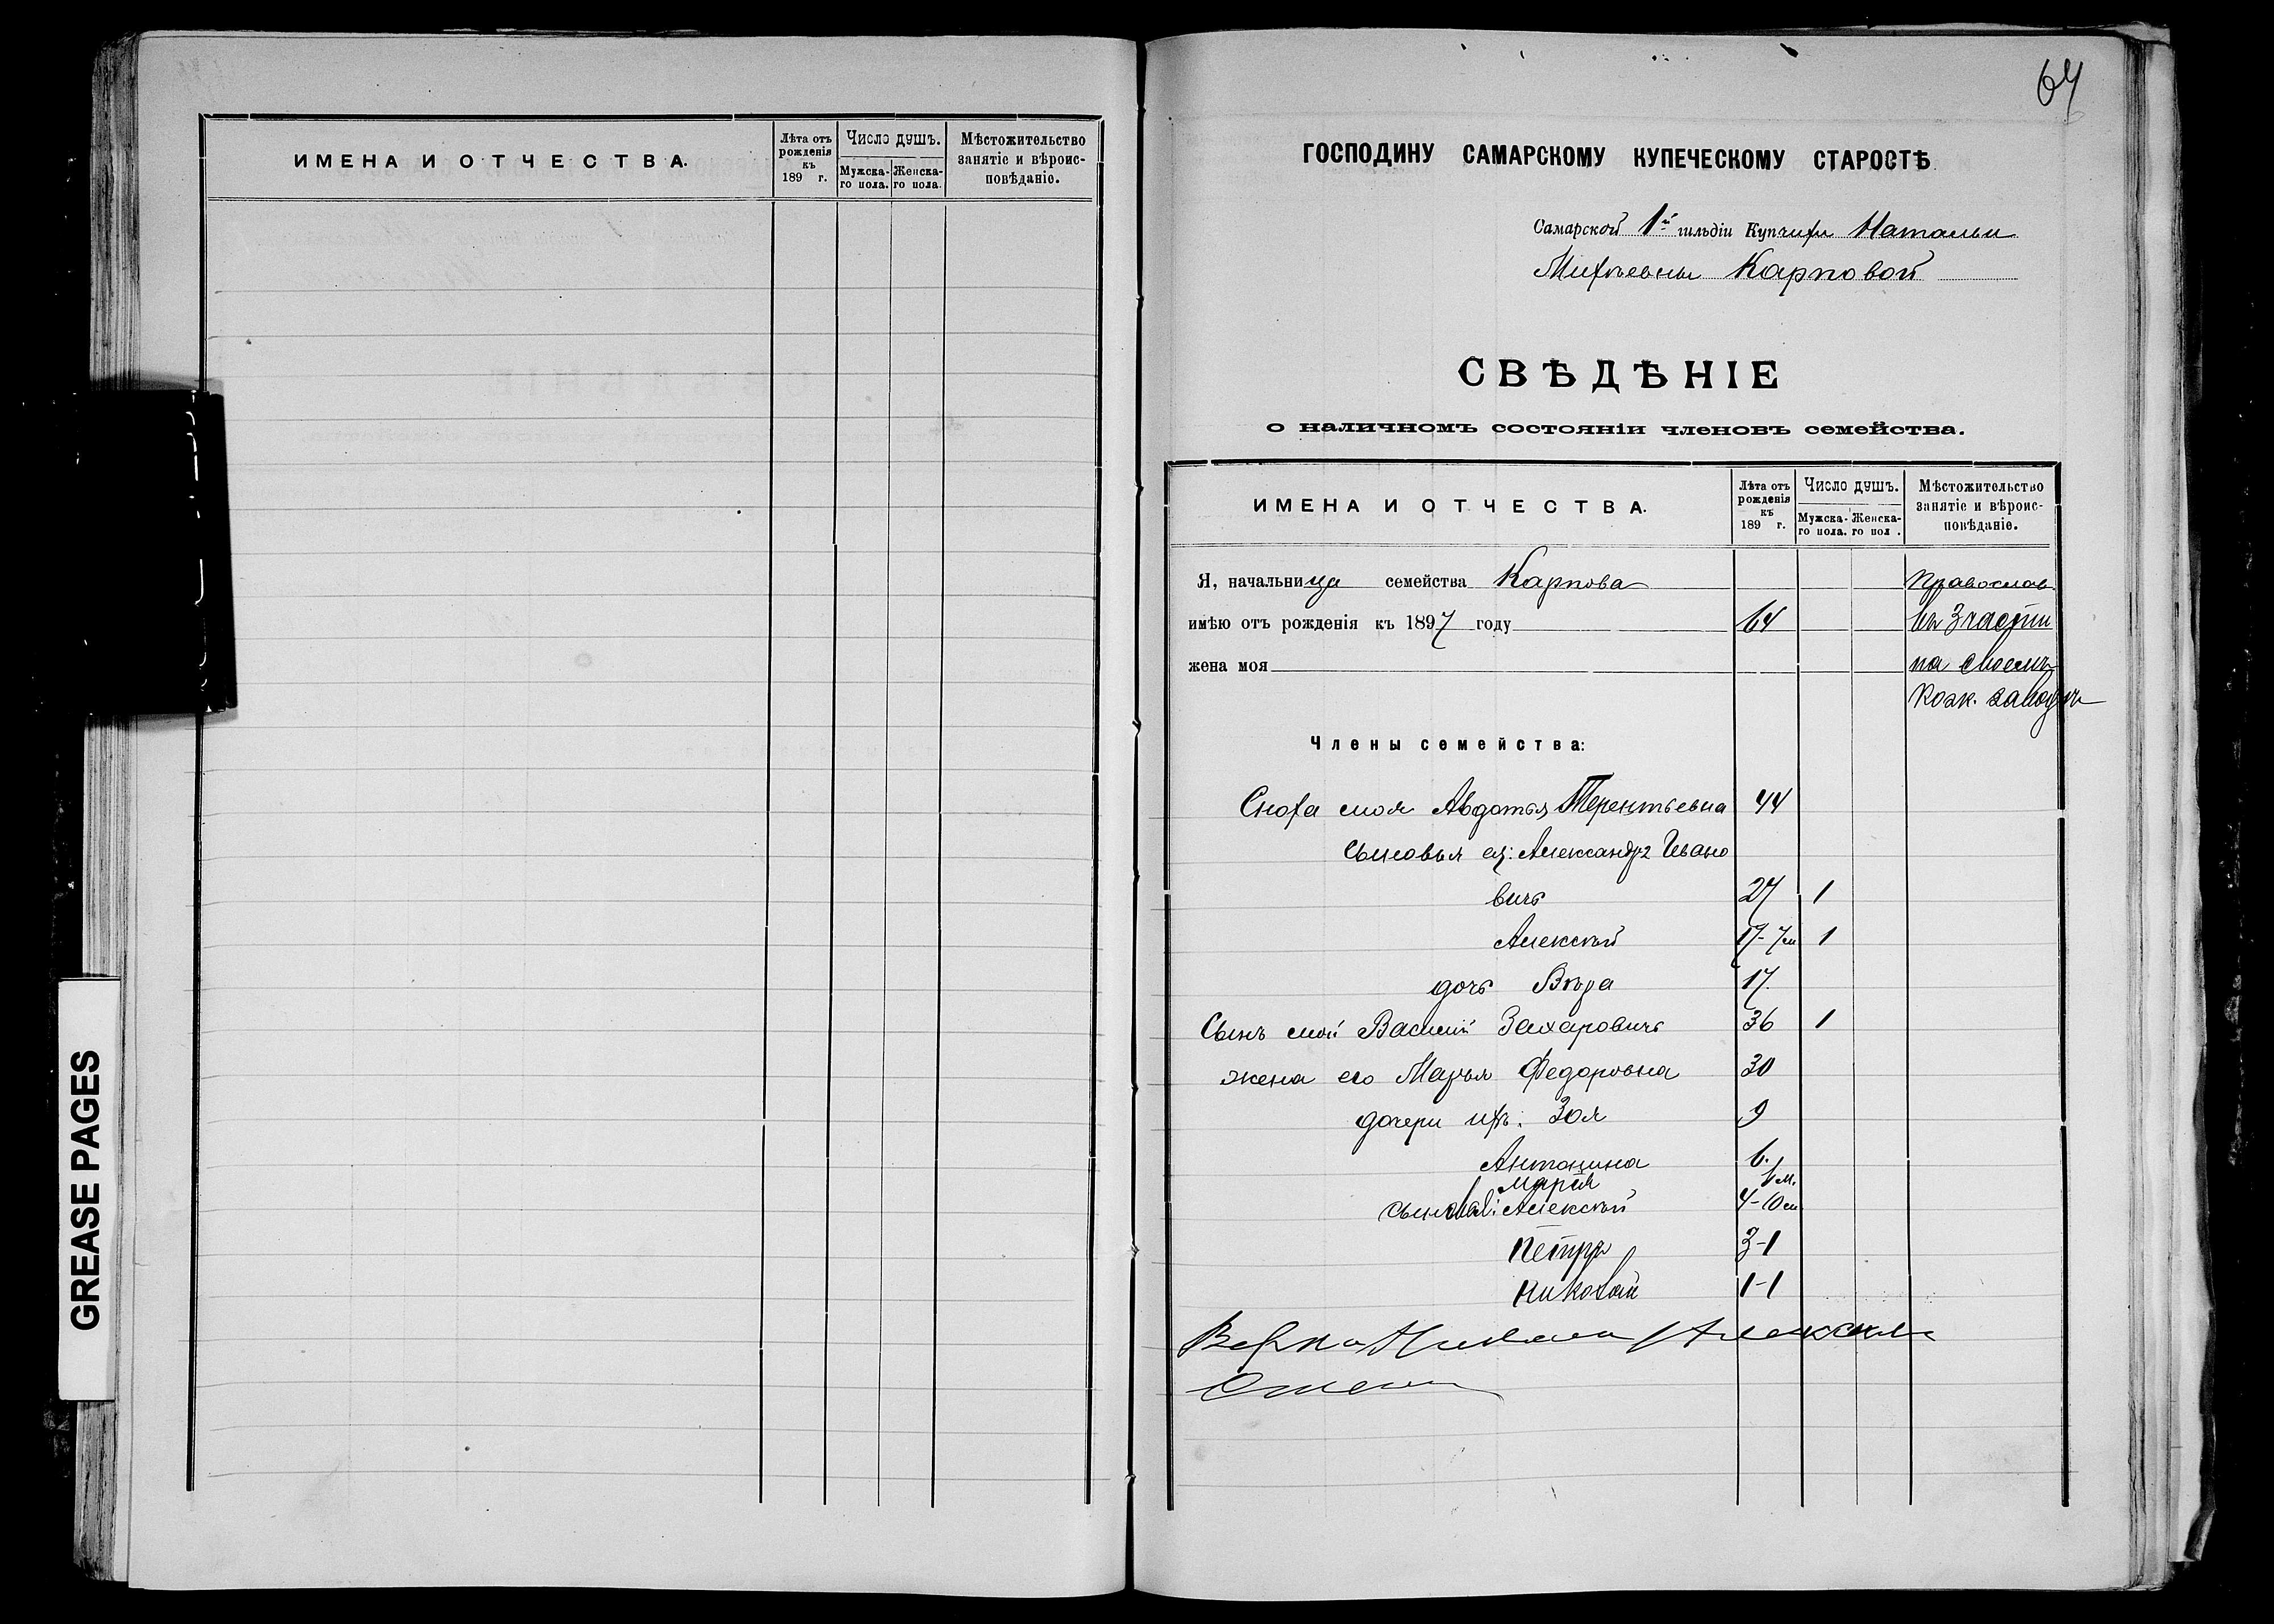 ИМЕНА И ОТЧЕСТВА.
Лѣта отъ рожденія къ 189 г.
Число душъ.
Мужска-го пола.
Женска-го пола.
Мѣстожительство занятіе и вѣроис-повѣданіе.
GREASE PAGES
64
ГОСПОДИНУ САМАРСКОМУ КУПЕЧЕСКОМУ СТАРОСТѢ
Самарской 1й гильдіи Купчихи Натальи
Михѣевны Карповой
СВѢДѢНІЕ
о наличномъ состояніи членовъ семейства.
ИМЕНА И ОТЧЕСТВА.
Лѣта отъ рожденія къ 189 г.
Число душъ.
Мужска-го пола.
Женска-го пол .
Мѣстожительство занятіе и вѣроис-повѣданіе.
Я, начальница семейства Карпова Православ.
имѣю отъ рожденія къ 1897 году 64 въ 3 части
жена моя на своемъ
кож. заводѣ
Члены семейства:
Сноха моя Авдотья Терентьевна 44
сыновья ея: Александръ Ивано
вичъ 27 1
Алексѣй 17-7м 1
дочь Вѣра 17.
Сынъ мой Василій Захаровичъ 36 1
жена его Марья Федоровна 30
дочери ихъ: Зоя 9
Антонина 6.
Марія 1/м.
сыновья: Алексѣй 4-10м
Петръ 3-1
Николай 1-1